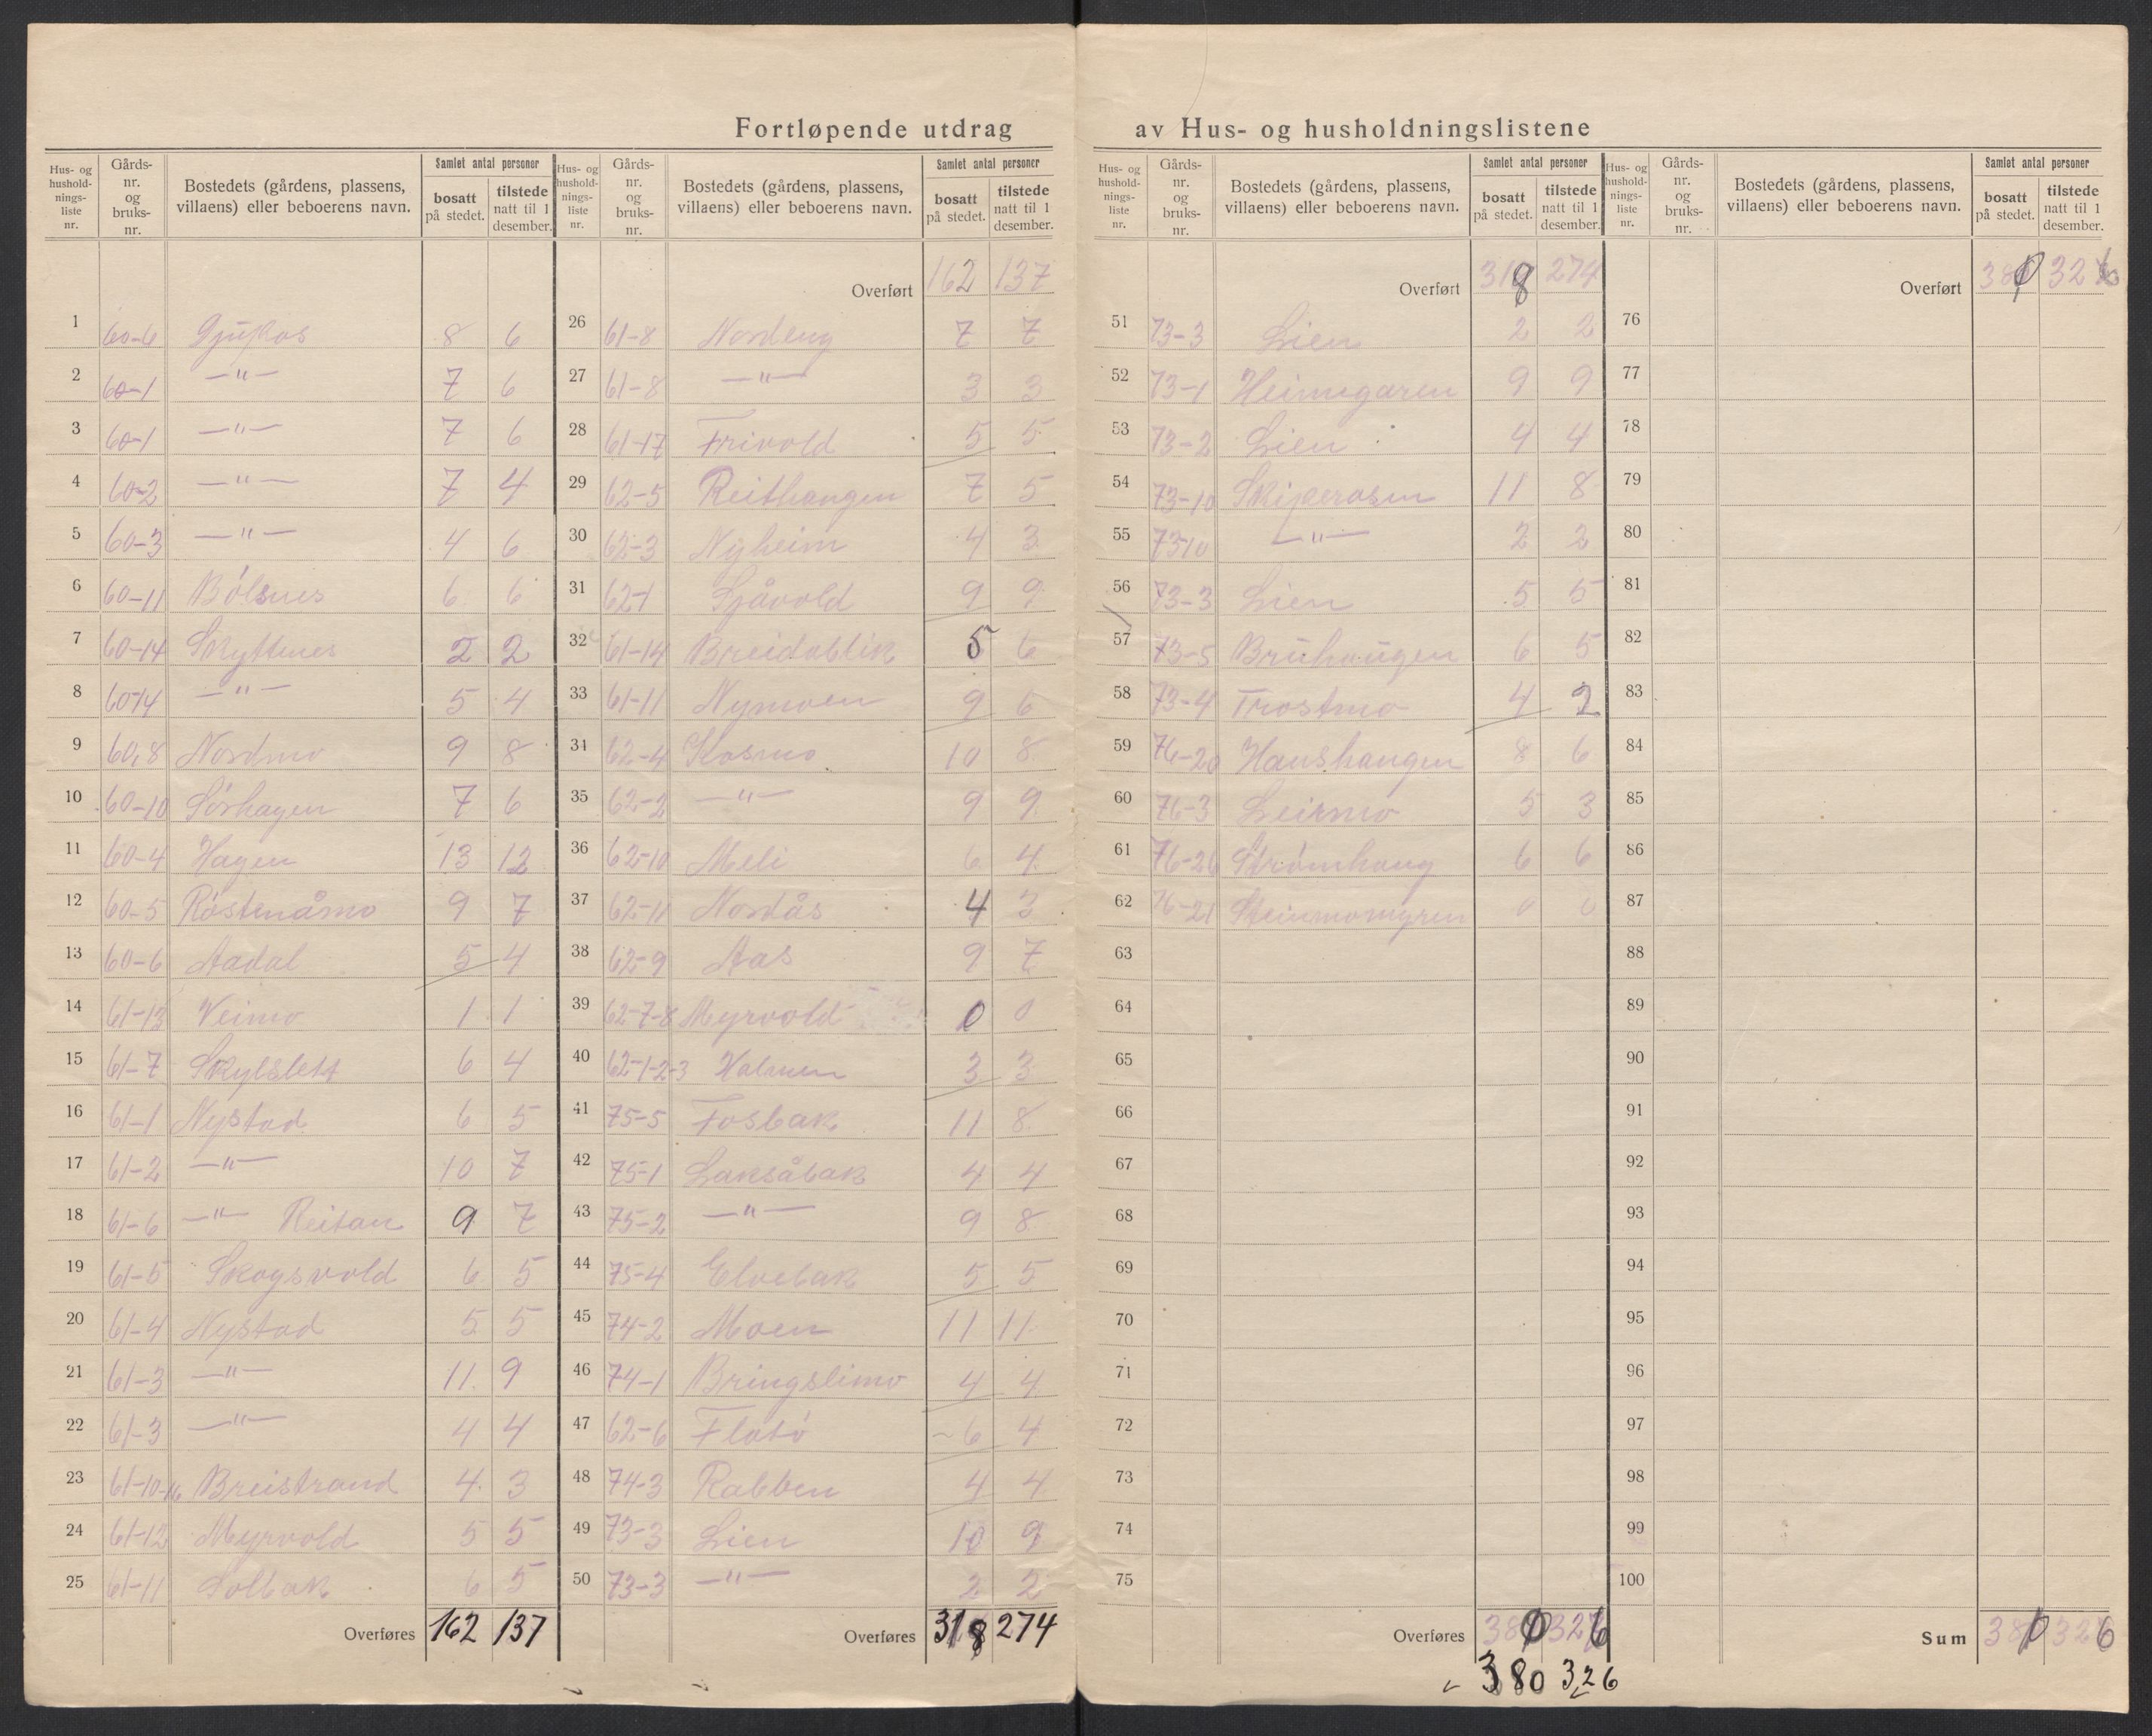 Fortløpende utdrag av Hus- og husholdningslistene
Hus- og hushold-nings-liste nr. | Gårds-nr. og bruks-nr. | Bostedets (gårdens, plassens, villaens) eller beboerens navn. | Samlet antal personer | bosatt på stedet. | tilstede natt til 1 desember.
1 60-6 8 6
2 60-1 —"— 7 6
3 60-1 —"— 7 6
4 60-2 —"— 7 4
5 60-3 —"— 4 6
6 60-11 Bólsnes 6 6
7 60-14 Skyttnes 2 2
8 60-14 —"— 5 4
9 60,8 Nordmo 9 8
10 60-10 Sørhagen 7 6
11 60-4 Hagen 13 12
12 60-5 Røstenåmo 9 7
13 60-6 Aadal 5 4
14 61-13 Veimo 1 1
15 61-7 Skylslett 6 4
16 61-1 Nystad 6 5
17 61-2 —"— 10 7
18 61-6 —"— Reitan 9 7
19 61-5 Skogsvold 6 5
20 61-4 Nystad 5 5
21 61-3 —"— 11 9
22 61-3 —"— 4 4
23 61-10-16 Breistrand 4 3
24 61-12 Myrvold 5 5
25 61-11 Solbak 6 5
Overføres 162 137
Hus- og hushold-nings-liste nr. | Gårds-nr. og bruks-nr. | Bostedets (gårdens, plassens, villaens) eller beboerens navn. | Samlet antal personer | bosatt på stedet. | tilstede natt til 1 desember.
Overført 162 137
26 61-8 Nordeng 7 7
27 61-8 —"— 3 3
28 61-17 Frivold 5 5
29 62-5 Reithaugen 7 5
30 62-3 Nyheim 4 3
31 62-1 Sjåvold 9 9
32 61-14 Breidablik 5 6
33 61-11 Nymoen 9 6
34 62-4 Kosmo 10 8
35 62-2 —"— 9 9
36 62-10 Meli 6 4
37 62-11 Nordås 4 3
38 62-9 Aas 9 7
39 62-7-8 Myrvold 0 0
40 62-1-2-3 Holmen 3 3
41 75-5 Fosbak 11 8
42 75-1 Laksåbak 4 4
43 75-2 —"— 9 8
44 75-4 Elvebak 5 5
45 74-2 Moen 11 11
46 74-1 Bringslimo 4 4
47 62-6 Flatö 6 4
48 74-3 Rabben 4 4
49 73-3 Lien 10 9
50 73-3 —"— 2 2
Overføres 318 274
Hus- og hushold-nings-liste nr. | Gårds-nr. og bruks-nr. | Bostedets (gårdens, plassens, villaens) eller beboerens navn. | Samlet antal personer | bosatt på stedet. | tilstede natt til 1 desember.
Overført 318 274
51 73-3 Lien 2 2
52 73-1 Heimegaren 9 9
53 73-2 Lien 4 4
54 73-10 Skiperåsen 11 8
55 73-10 —"— 2 2
56 73-3 Lien 5 5
57 73-5 Bruhaugen 6 5
58 73-4 Trostmo 4 2
59 76-20 Haushaugen 8 6
60 76-3 Leirmo 5 3
61 76-26 Strömhaug 6 6
62 76-21 Steinmomyren 0 0
63
64
65
66
67
68
69
70
71
72
73
74
75
Overføres 380 326
380 326
Hus- og hushold-nings-liste nr. | Gårds-nr. og bruks-nr. | Bostedets (gårdens, plassens, villaens) eller beboerens navn. | Samlet antal personer | bosatt på stedet. | tilstede natt til 1 desember.
Overført 380 326
76
77
78
79
80
81
82
83
84
85
86
87
88
89
90
91
92
93
94
95
96
97
98
99
100
Sum 380 326